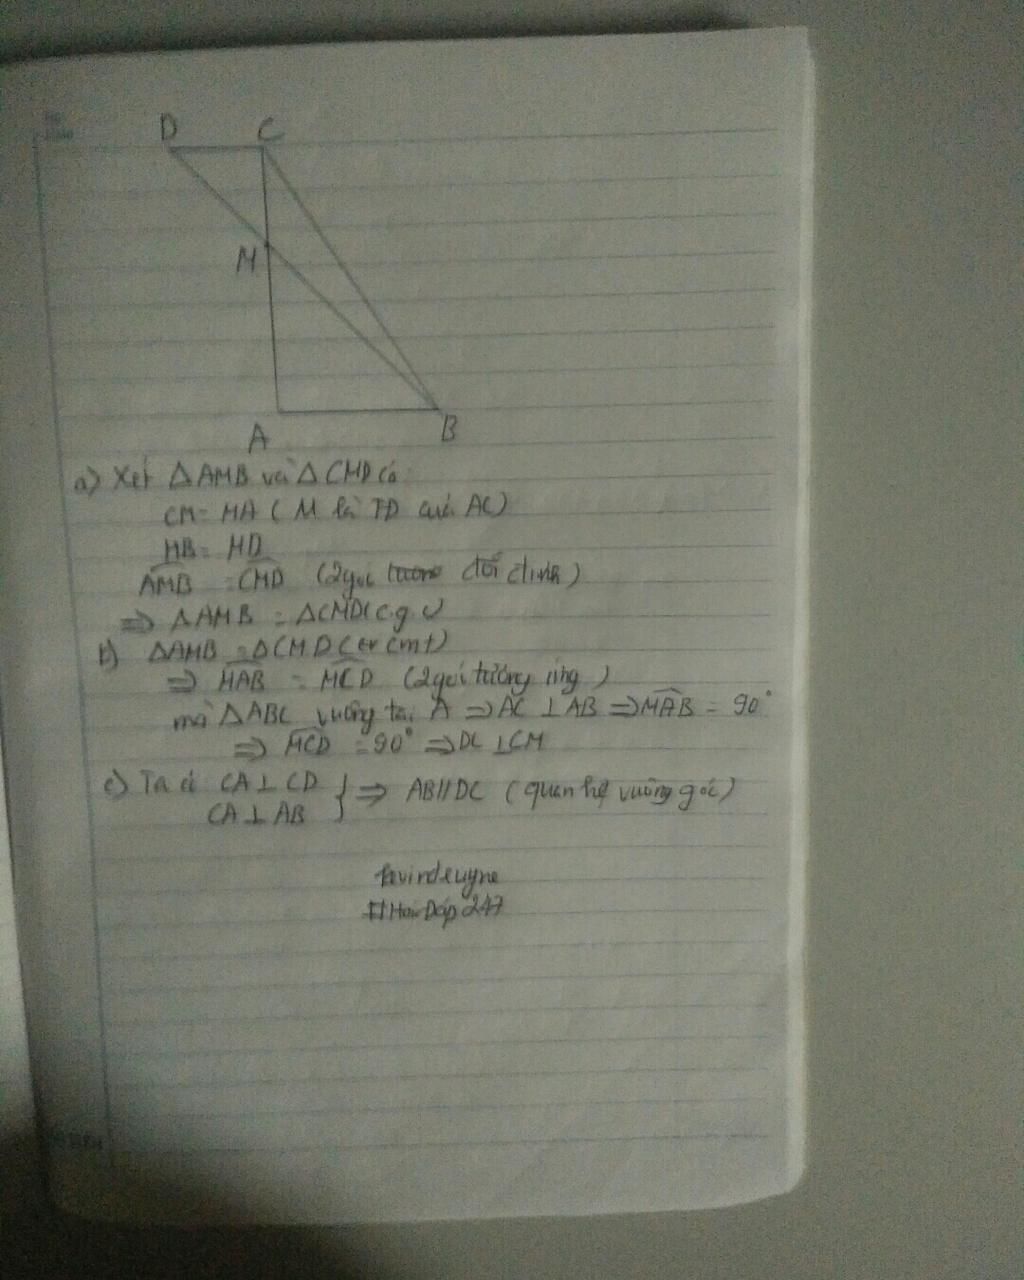 D C
M
A B
a) Xét ΔAMB và ΔCMD có
CM = MA ( M là TĐ của AC)
MB = MD
AMB = CMD (2 góc đối đỉnh)
=> ΔAMB = ΔCMD (c.g.c)
b) ΔAMB = ΔCMD ( cmt)
=> MAB = MCD (2 góc tương ứng )
mà ΔABC vuông tại A => AC ⊥ AB => MAB = 90°
=> MCD = 90° => DC ⊥ CM
c) Ta có CA ⊥ CD } => AB // DC ( quan hệ vuông góc)
CA ⊥ AB
#HoiDap247